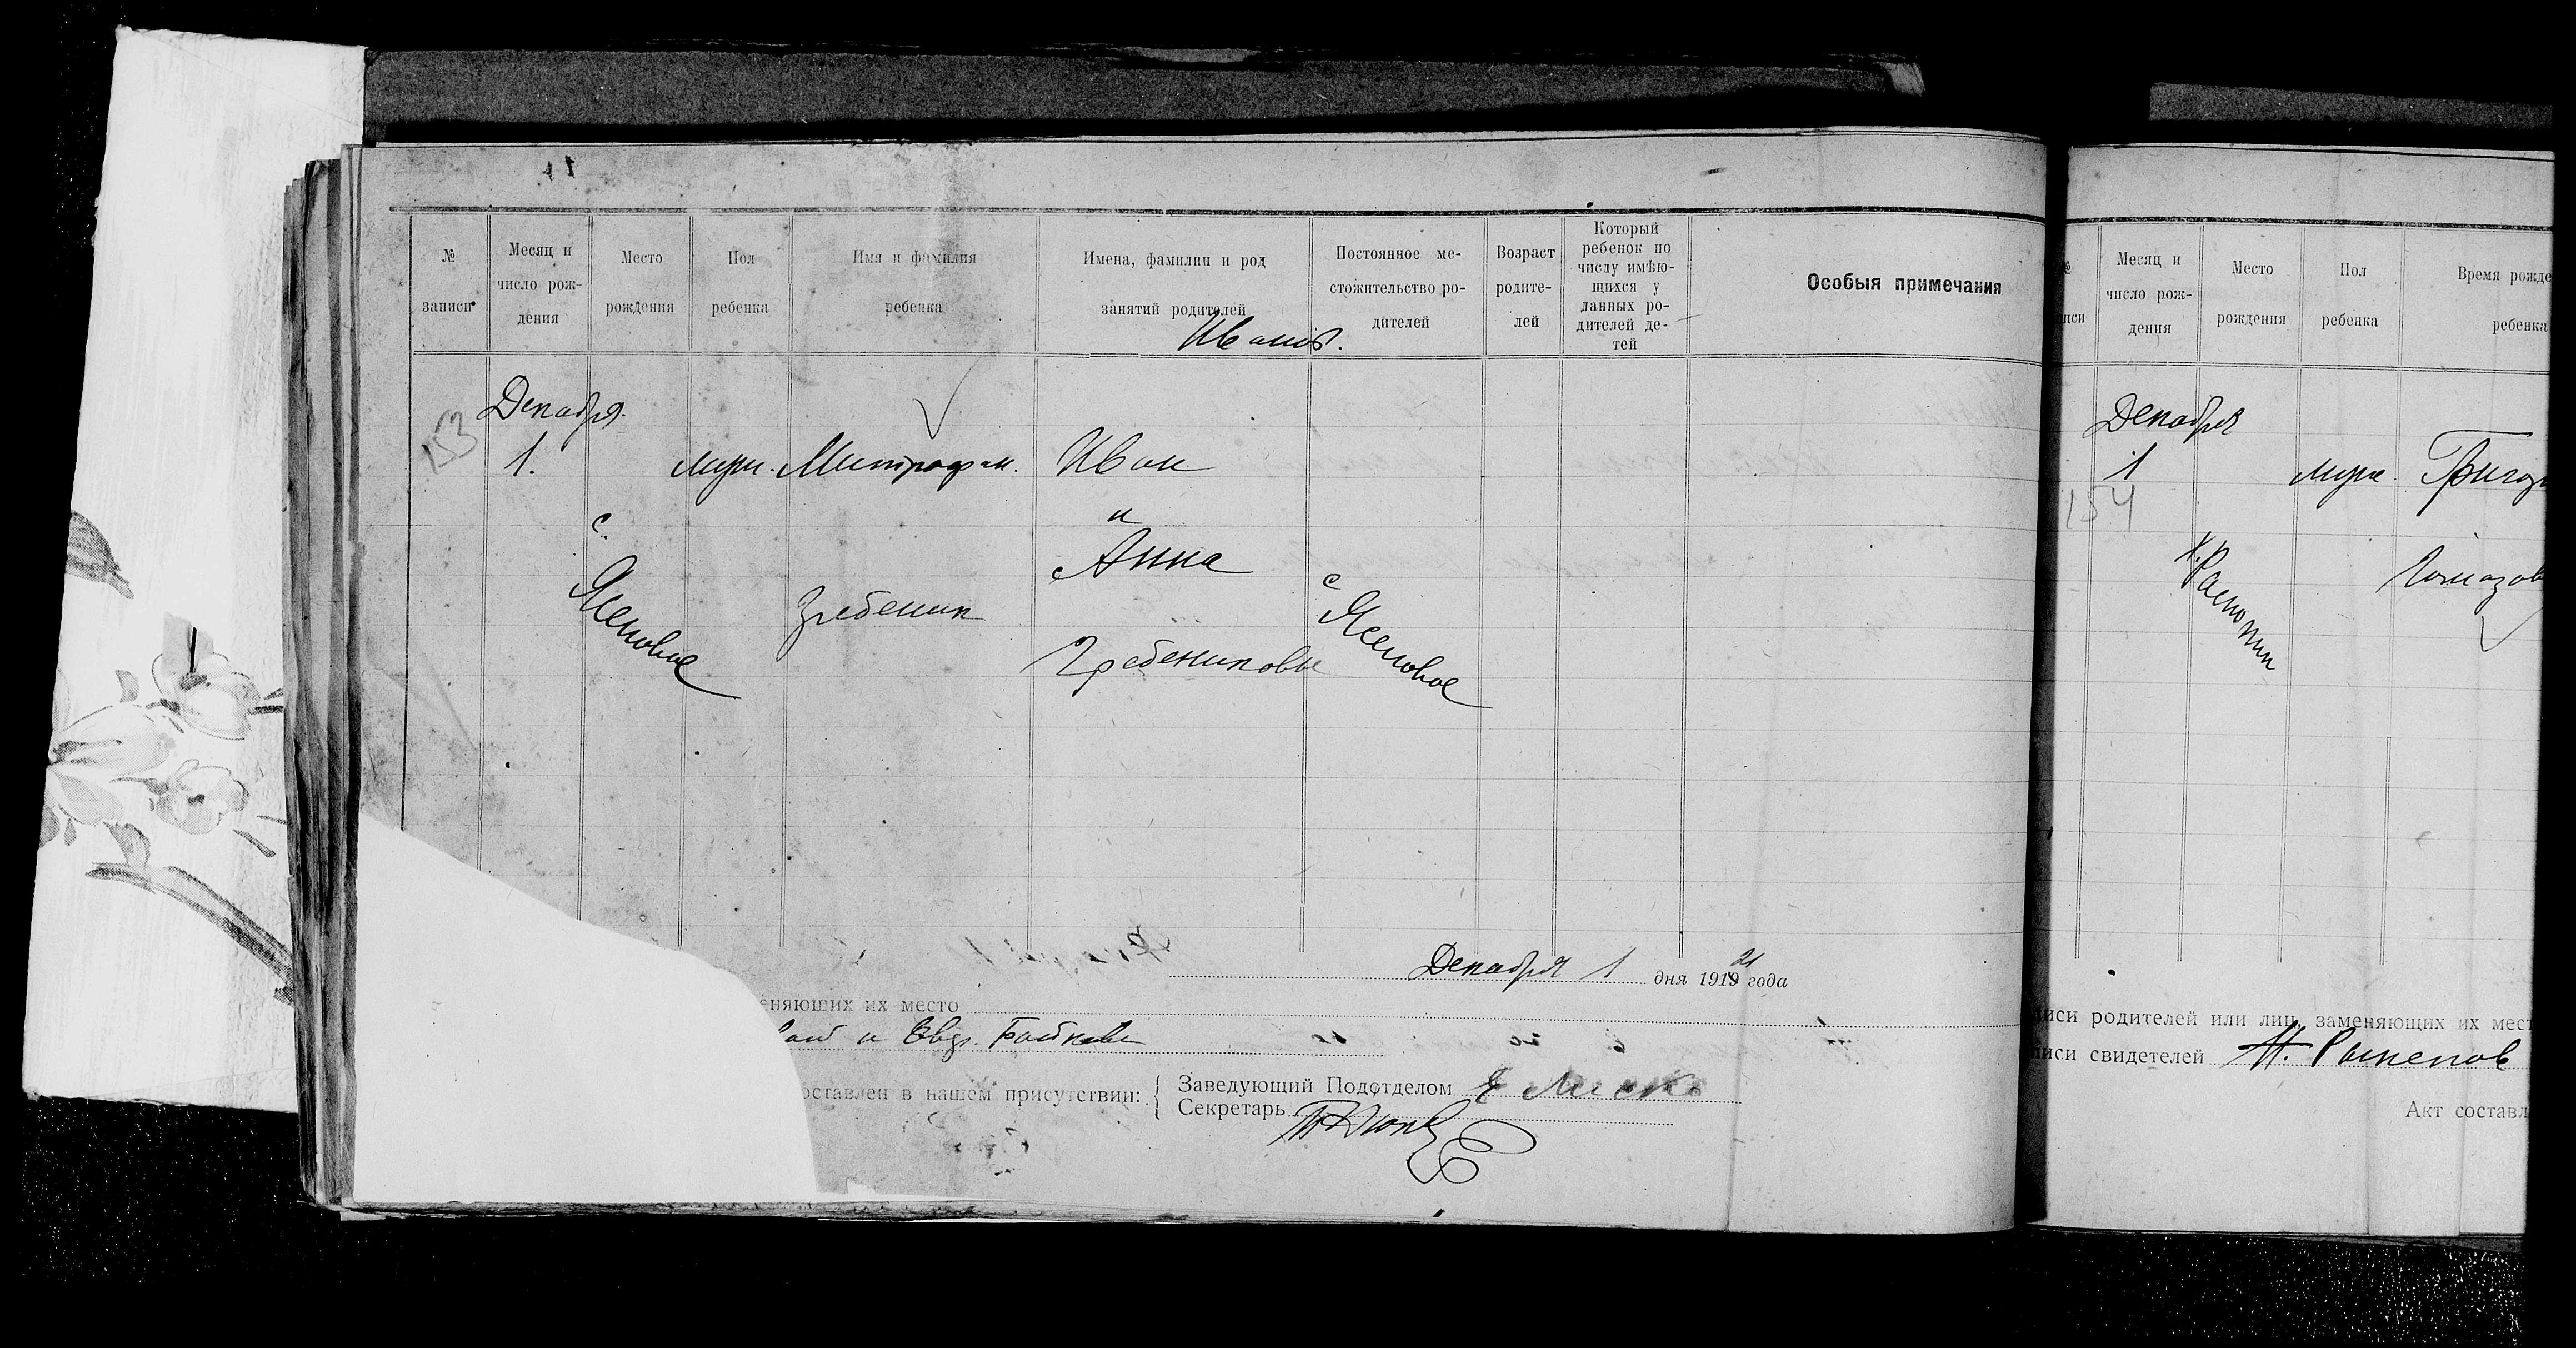 № записи
Месяц и число рождения
Место рождения
Пол ребенка
Имя и фамилия ребенка
Имена, фамилии и род занятий родителей
Постоянное местожительство родителей
Возраст родителей
Который ребенок по числу имѣющихся у данных родителей детей
Особыя примечания
153
Декабря
1.
с. Ясеновое
муж.
Митрофан.
Гребеник
Иван
и
Анна
Гребениковы
с Ясеновое
Декабря 1 дня 1919 21 года
еняющих их место
и Евд.
оставлен в нашем присутствии:
Заведующий Подотделом
Секретарь
Месяц и число рождения
Место рождения
Пол ребенка
Время рожде
ребенка
Декабря
1
154
муж.
иси родителей или лиц, заменяющих их мест
иси свидетелей
Акт составл